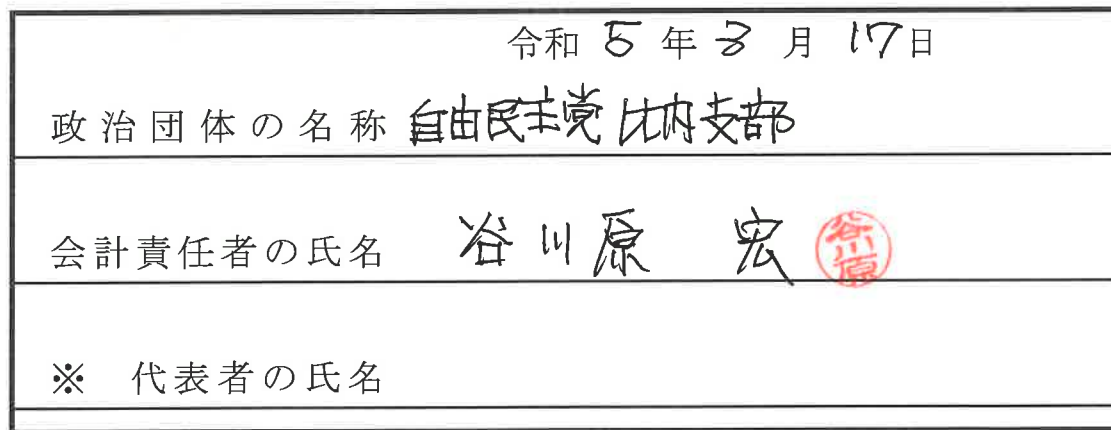 令和 5 年 3 月 17日
政治団体の名称 自由民主党比内支部
会計責任者の氏名 谷川原 宏 谷川原
※ 代表者の氏名